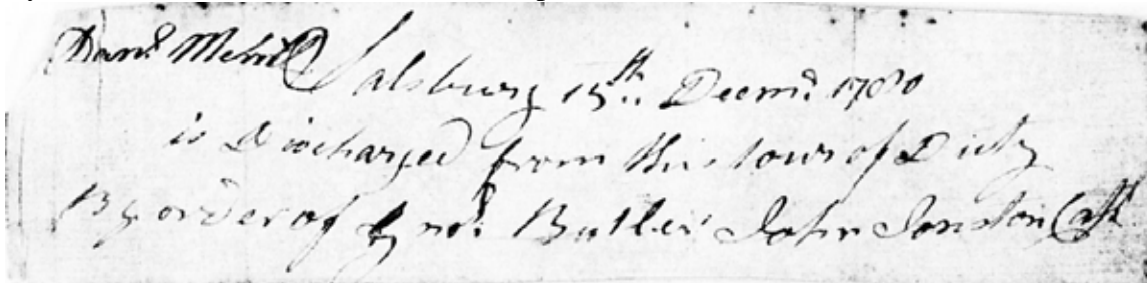 Danl. Salsbury 15th. Decmr. 1780
is Discharged from this tour of Duty
By order of Genrl. Butler John Jonston Capt